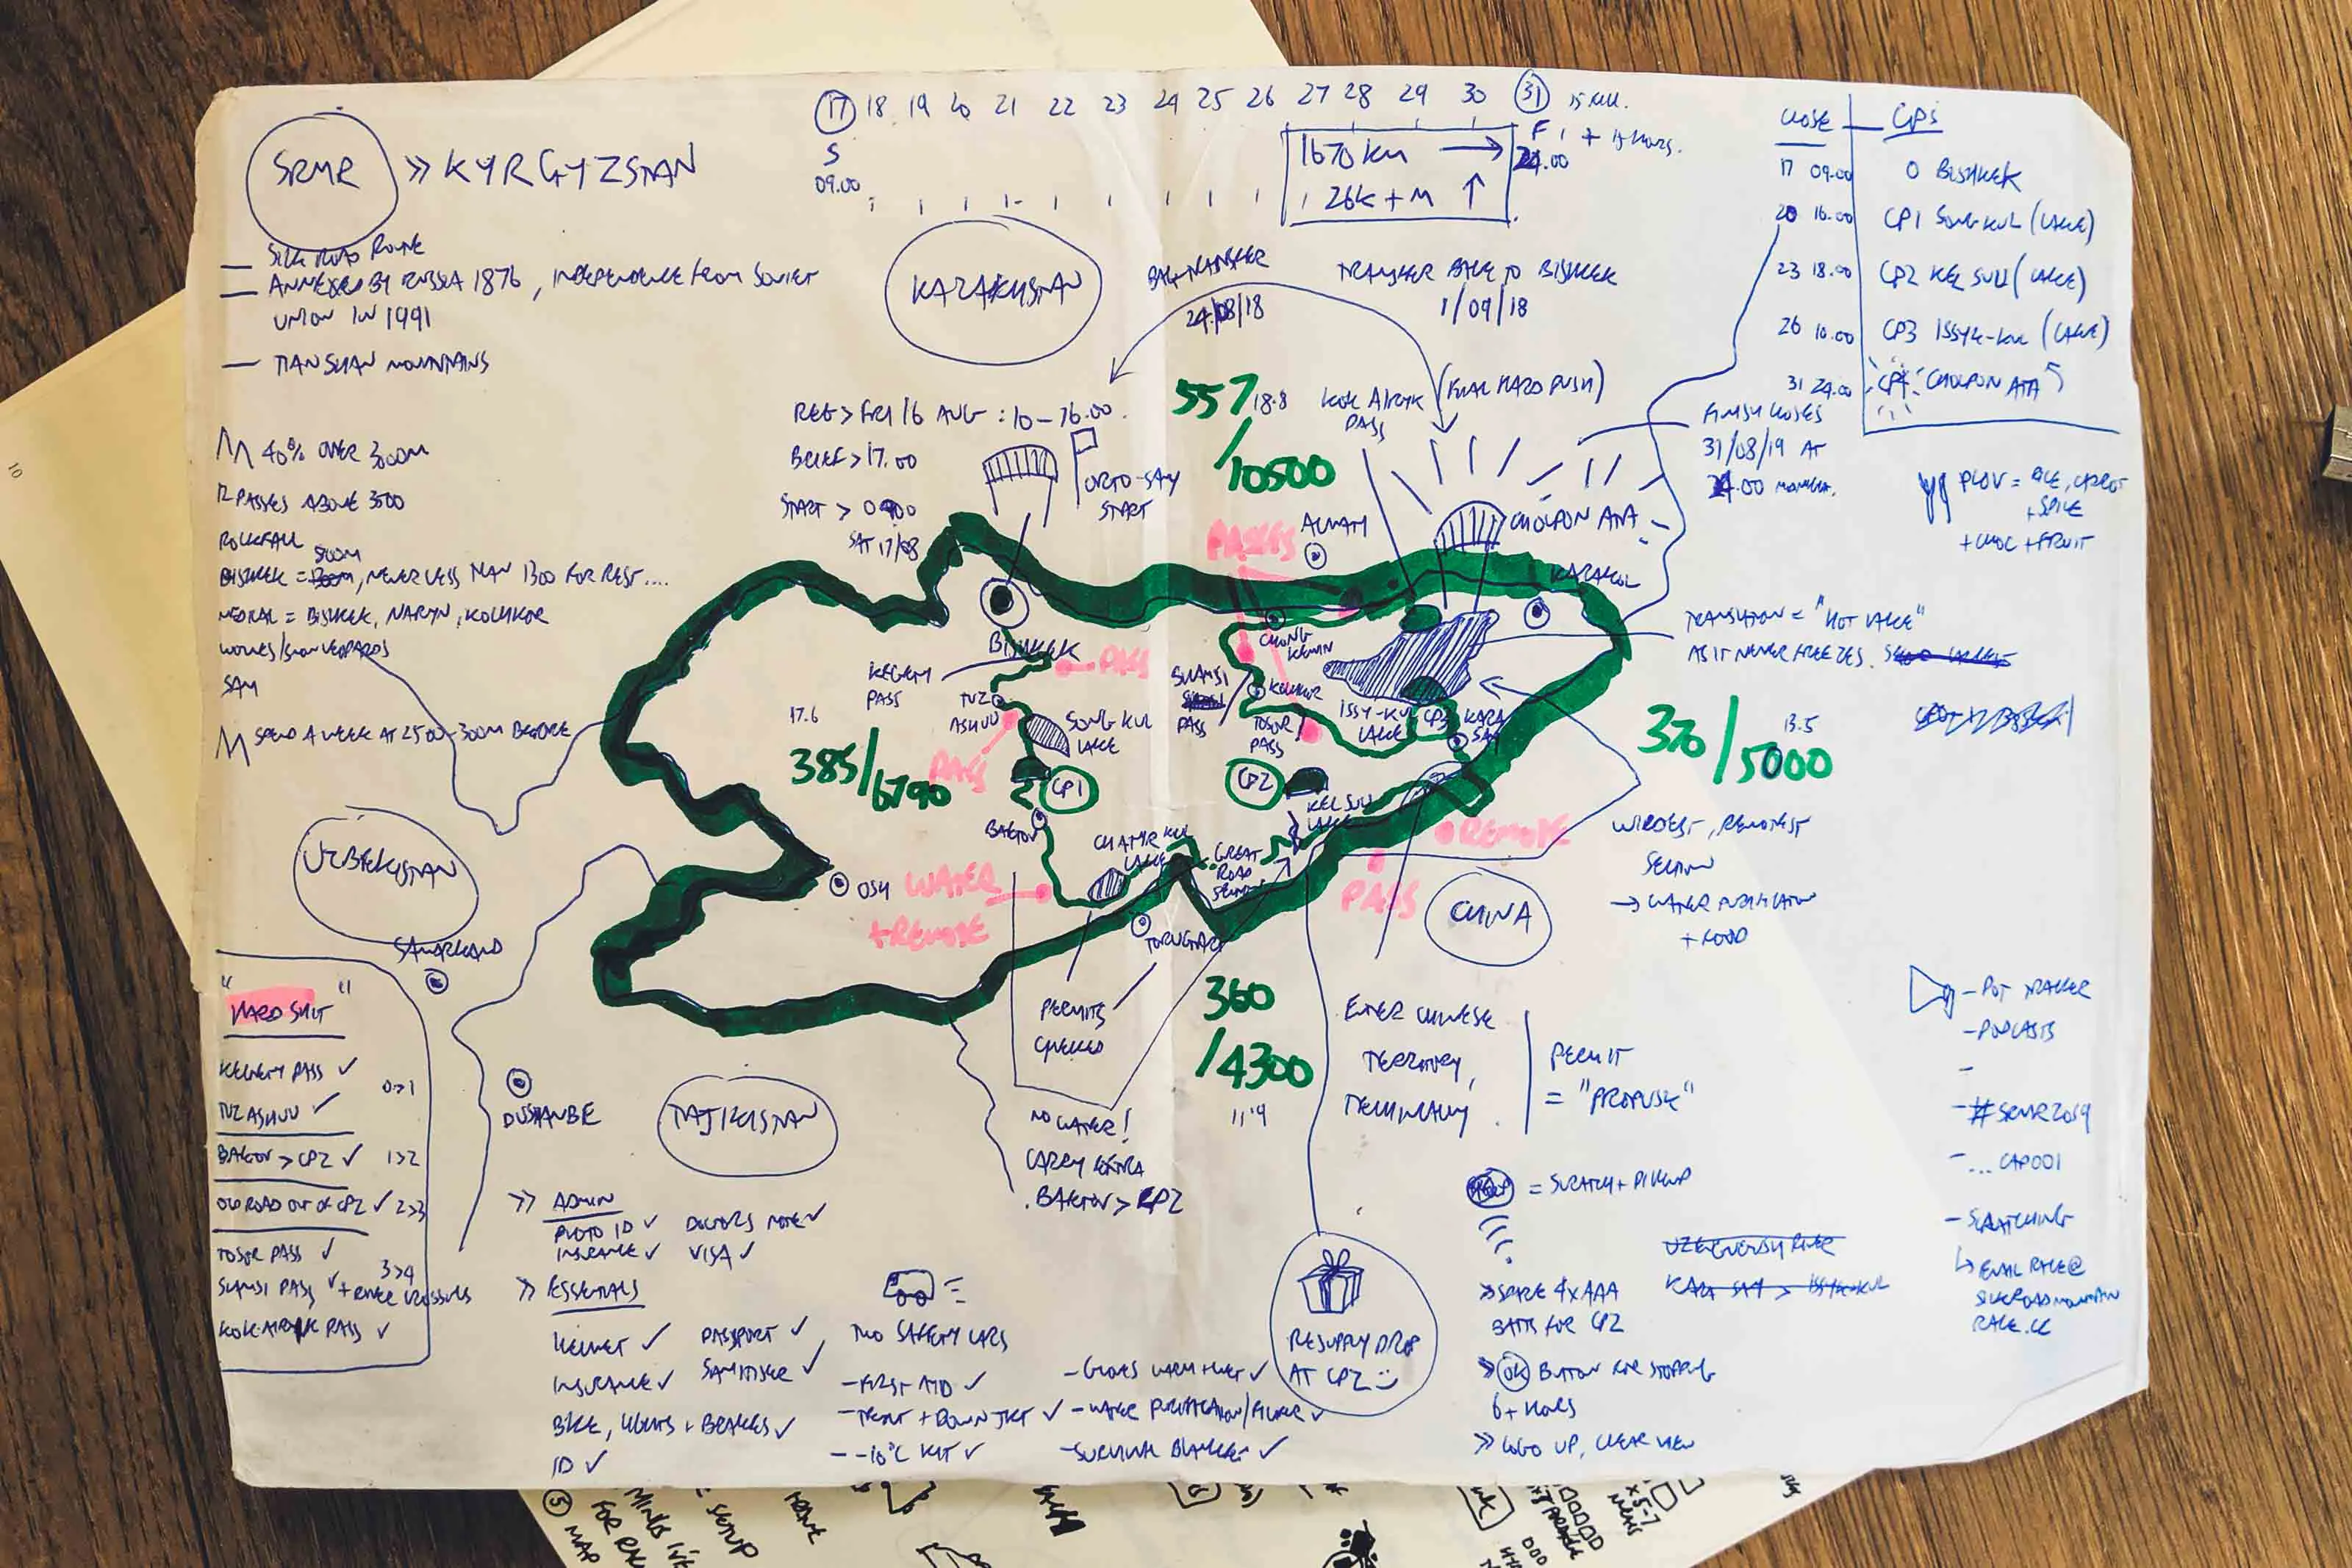 SRMR >> KYRGYZSTAN
17 18 19 20 21 22 23 24 25 26 27 28 29 30 31
S
09.00
F
24.00
1 + 15 HOURS.
1670 KM →
26K + M ↑
CLOSE CPS
17 09.00 0 BISHKEK
20 16.00 CP1 SONG KUL (LAKE)
23 18.00 CP2 KEL SUU (LAKE)
26 10.00 CP3 ISSYK-KUL (LAKE)
31 24.00 CP4 CHOLPON ATA
FINISH CLOSES
31/08/19 AT
24.00
— SILK ROAD ROUTE
— ANNEXED BY RUSSIA 1876, INDEPENDENCE FROM SOVIET
UNION IN 1991
— TIAN SHAN MOUNTAINS
40% OVER 3000M
12 PASSES ABOVE 3500
ROCKFALL
BISHKEK = 800M, NEVER LESS THAN 1300 FOR REST....
MEDICAL = BISHKEK, NARYN, KOCHKOR
WOLVES/SNOW LEOPARDS
SPEND A WEEK AT 2500-300M BEFORE
KAZAKHSTAN
BAG TRANSFER
24/08/18
TRANSFER BACK TO BISHKEK
1/09/18
REG > FRI 16 AUG : 10-16.00
BRIEF > 17.00
START > 0900
SAT 17/08
ORTO-SAY
START
557 18.8
/10500
KOK AIRYK
PASS
(FINAL HARD PUSH)
CHOLPON ATA
ALMATY
PASSES
KARAKOL
PLOV = RICE, CARROT
+ SPICE
+ CHOC + FRUIT
TRANSLATION = "HOT LAKE"
AS IT NEVER FREEZES.
BISHKEK
KEGETY
PASS
PASS
TUZ
ASHUU
SONG KUL
LAKE
PASS
CP1
BAETOV
CHONG
KEMIN
KOCHKOR
SHAMSI
PASS
TOSOR
PASS
ISSY-KUL
LAKE
CP3
KARA
SAY
CP2
KEL SUU
LAKE
17.6
385/6790
13.5
370/5000
CHATYR KUL
LAKE
GREAT
ROAD
OSH
WATER
+REMOTE
TORUGART
REMOTE
PASS
CHINA
WIRDEST, REMOTEST
SECTION
→ WATER PURIFICATION
+ FOOD
UZBEKISTAN
SAMARKAND
DUSHANBE
TAJIKISTAN
PERMITS
CHECKED
360
/4300
11.9
ENTER CHINESE
TERRITORY,
TECHNICALLY.
PERMIT
= "PROPUSK"
NO WATER!
CARRY EXTRA
BAETOV > CP2
"HARD SHIT"
KEGETY PASS ✓
0>1
TUZ ASHUU ✓
BAETOV > CP2 ✓ 1>2
OLD ROAD OUT OF CP2 ✓ 2>3
TOSOR PASS ✓
3>4
SHAMSI PASS ✓ + RIVER CROSSINGS
KOK-AIRYK PASS ✓
>> ADMIN
PHOTO ID ✓ DOCTORS NOTE ✓
INSURANCE ✓ VISA ✓
>> ESSENTIALS
HELMET ✓ PASSPORT ✓
INSURANCE ✓ SANITISER ✓
BIKE, LIGHTS + BRAKES ✓
ID ✓
TWO SAFETY CARS
- FIRST AID ✓
- TENT + DOWN JKT ✓
- -10°C KIT ✓
- GLOVES WARM + WET ✓
- WATER PURIFICATION/FILTER ✓
- SURVIVAL BLANKET ✓
RESUPPLY DROP
AT CP2
HELP = SCRATCH + PICKUP
>> SPARE 4xAAA
BATTS FOR CP2
>> OK BUTTON FOR STOPPING
6+ HOURS
>> LOGO UP, CLEAR VIEW
KARA SAY > ISSYK-KUL
- DOT TRACKER
- PODCASTS
-
- #SRMR2019
- ... CAP001
- SCRATCHING
↳ EMAIL RACE@
SILKROADMOUNTAIN
RACE.CC
10
5 MAP
FOR
SETUP
x 5-7